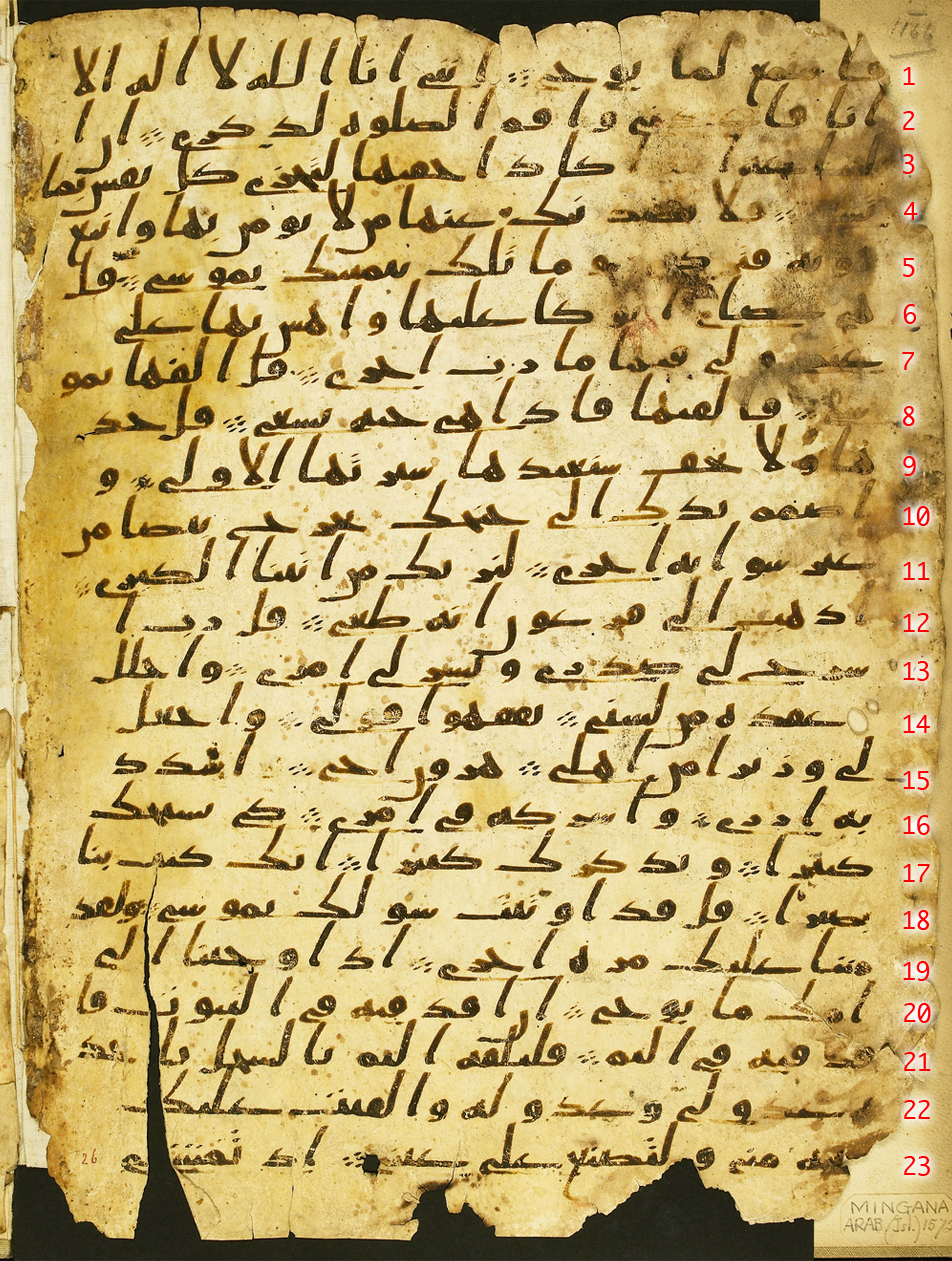 1166
فاستمع لما يوحى انني انا الله لا اله الا 1
انا فاعبدني واقم الصلوه لذكري ان ا 2
لساعه اتيه اكاد اخفيها لتجزى كل نفس بما 3
تسعى فلا يصدنك عنها من لا يومن بها واتبع 4
هويه فتردى وما تلك بيمينك يموسى قل 5
هي عصاي اتوكا عليها واهش بها على 6
غنمي ولي فيها مارب اخرى قل القها يمو 7
سى فالقيها فاذا هي حيه تسعى قل خذ 8
ها ولا تخف سنعيدها سيرتها الاولى و 9
اضمم يدك الى جنحك تخرج بيضا من 10
غير سو ايه اخرى لنريك من ايتنا الكبرى 11
اذهب الى فرعون انه طغى قل رب ا 12
شرح لي صدري ويسر لي امري واحلل 13
عقده من لسني يفقهوا قولي واجعل 14
لي وزيرا من اهلي هرون اخي اشدد 15
به ازري واشركه في امري كي نسبحك 16
كثيرا ونذكرك كثيرا انك كنت بنا 17
بصيرا قل قد اوتيت سولك يموسى ولقد 18
مننا عليك مره اخرى اذ اوحينا الى 19
امك ما يوحى ان اقذفيه في التبوت فا 20
قذفيه في اليم فليلقه اليم بالسحل ياخذ 21
ه عدو لي وعدو له والقيت عليك 22
محبه مني ولتصنع على عيني اذ تمشي 23
26
MINGANA
ARAB (Isl.) 15